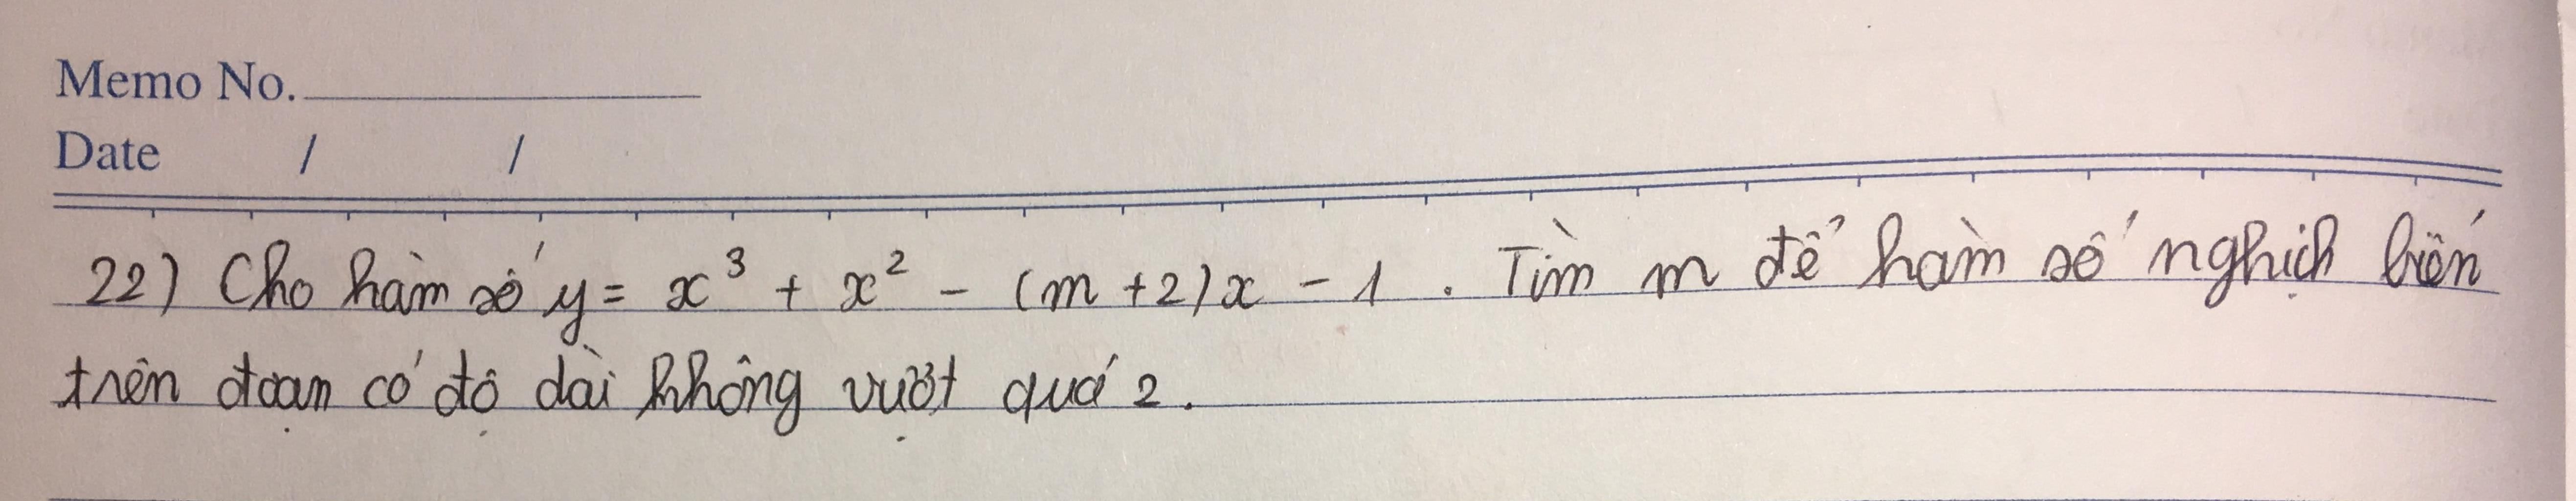 Memo No.
Date / /
22) Cho hàm số y = x³ + x² - (m +2)x - 1 . Tìm m để hàm số nghịch biến
trên đoạn có độ dài không vượt quá 2.